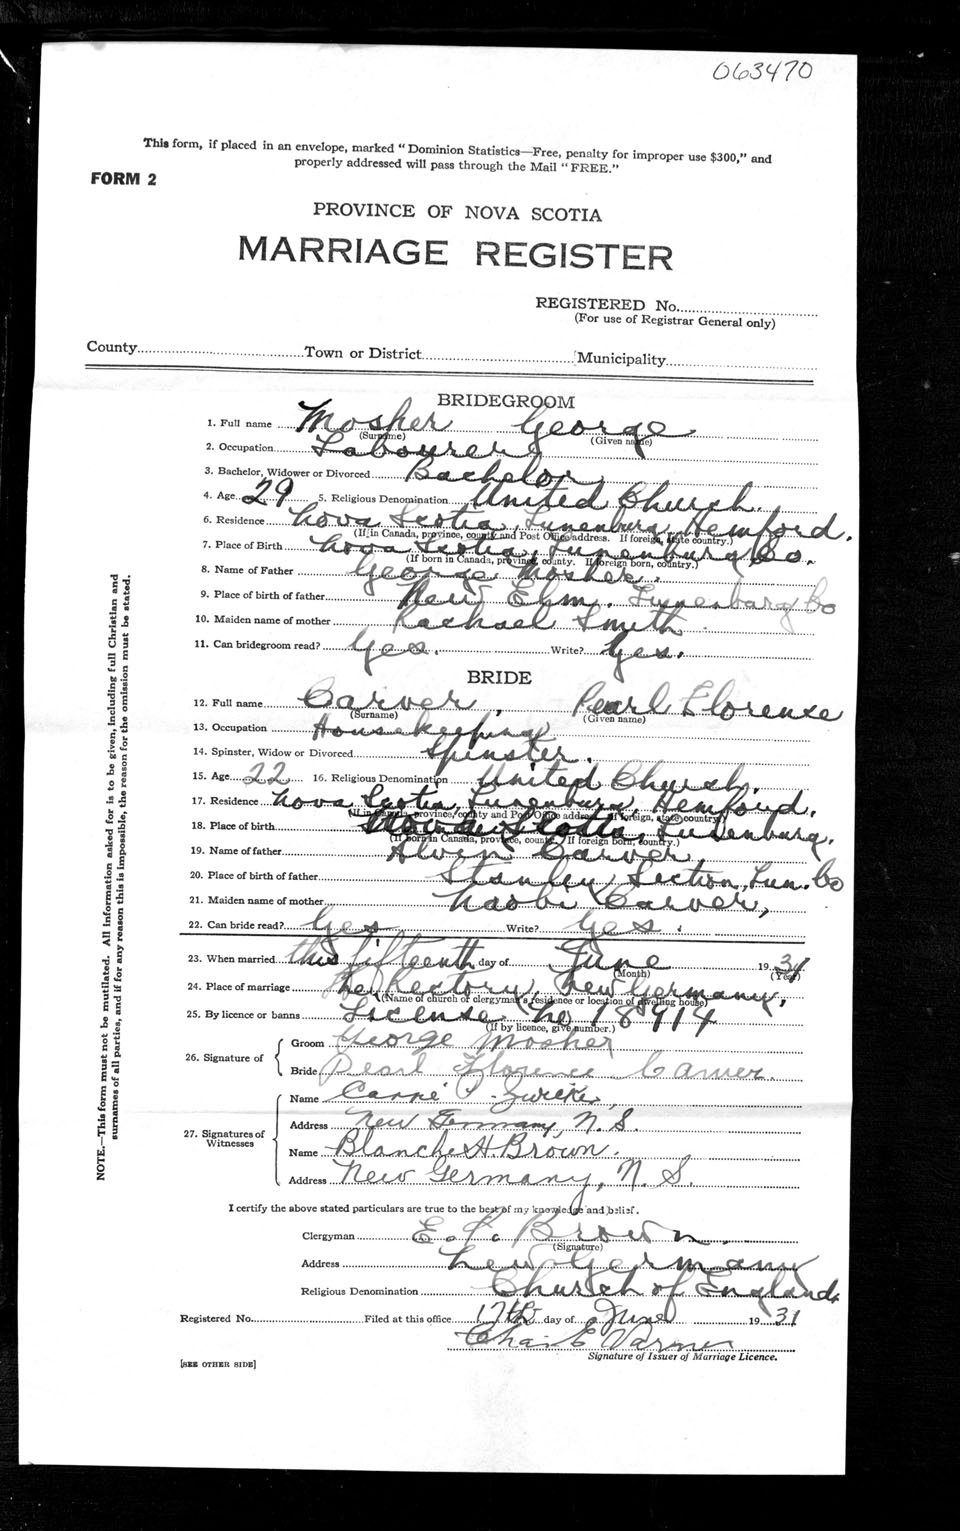 063470
This form, if placed in an envelope, marked "Dominion Statistics—Free, penalty for improper use $300," and
properly addressed will pass through the Mail "FREE."
FORM 2
PROVINCE OF NOVA SCOTIA
MARRIAGE REGISTER
REGISTERED No.
(For use of Registrar General only)
County Town or District Municipality
BRIDEGROOM
1. Full name Mosher George
(Surname) (Given name)
2. Occupation Labourer
3. Bachelor, Widower or Divorced Bachelor
4. Age 29 5. Religious Denomination United Church.
6. Residence Nova Scotia, Lunenburg, Hemford.
(If in Canada, province, county and Post Office address. If foreign, state country.)
7. Place of Birth Nova Scotia, Lunenburg Co.
(If born in Canada, province, county. If foreign born, country.)
8. Name of Father George Mosher.
9. Place of birth of father New Elm. Lunenburg Co
10. Maiden name of mother Rachael Smith
11. Can bridegroom read? Yes. Write? Yes.
BRIDE
12. Full name Carver, Pearl Florence
(Surname) (Given name)
13. Occupation Housekeeping
14. Spinster, Widow or Divorced Spinster.
15. Age 22 16. Religious Denomination United Church.
17. Residence Nova Scotia, Lunenburg, Hemford.
(If in Canada, province, county and Post Office address. If foreign, state country.)
18. Place of birth Nova Scotia, Lunenburg.
(If born in Canada, province, county. If foreign born, country.)
19. Name of father Alvin Carver,
20. Place of birth of father Stanley Section, Lun. Co
21. Maiden name of mother Naobi Carver,
22. Can bride read? Yes Write? Yes.
23. When married this fifteenth day of June 1931
(Month) (Year)
24. Place of marriage The Rectory, New Germany.
(Name of church or clergyman's residence or location of dwelling house)
25. By licence or banns License No 18914
(If by licence, give number.)
26. Signature of
Groom George Mosher
Bride Pearl Florence Carver.
27. Signatures of Witnesses
Name Carrie Zwicker,
Address New Germany, N. S.
Name Blanche H. Brown.
Address New Germany, N. S.
I certify the above stated particulars are true to the best of my knowledge and belief.
Clergyman E. Brown.
(Signature)
Address New Germany
Religious Denomination Church of England.
Registered No. Filed at this office 17th day of June 1931
Chas E
Signature of Issuer of Marriage Licence.
[SEE OTHER SIDE]
NOTE.—This form must not be mutilated. All information asked for is to be given, including full Christian and
surnames of all parties, and if for any reason this is impossible, the reason for the omission must be stated.